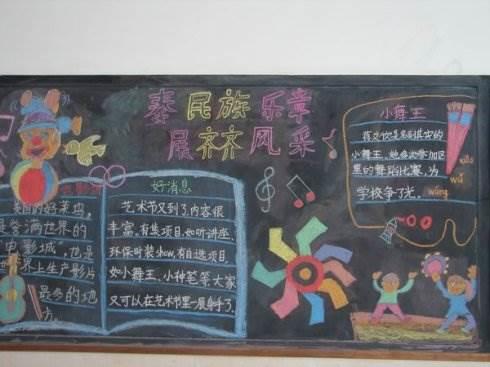 奏民族乐章
展齐齐风采
好消息
艺术节又到了,内容很
丰富,有选项目,如听讲座.
环保时装show,有自选项目.
如小舞王、小神笔等,大家
又可以在艺术节里一展身手了.
美国的好莱坞,
是
满世界的
“电影城”,也是
世界上生产影片
最多的地
方。
小舞王
是名副其实的
小舞王,她
里的舞蹈比赛,为
学校争了光。
xiǎo
wǔ
wáng